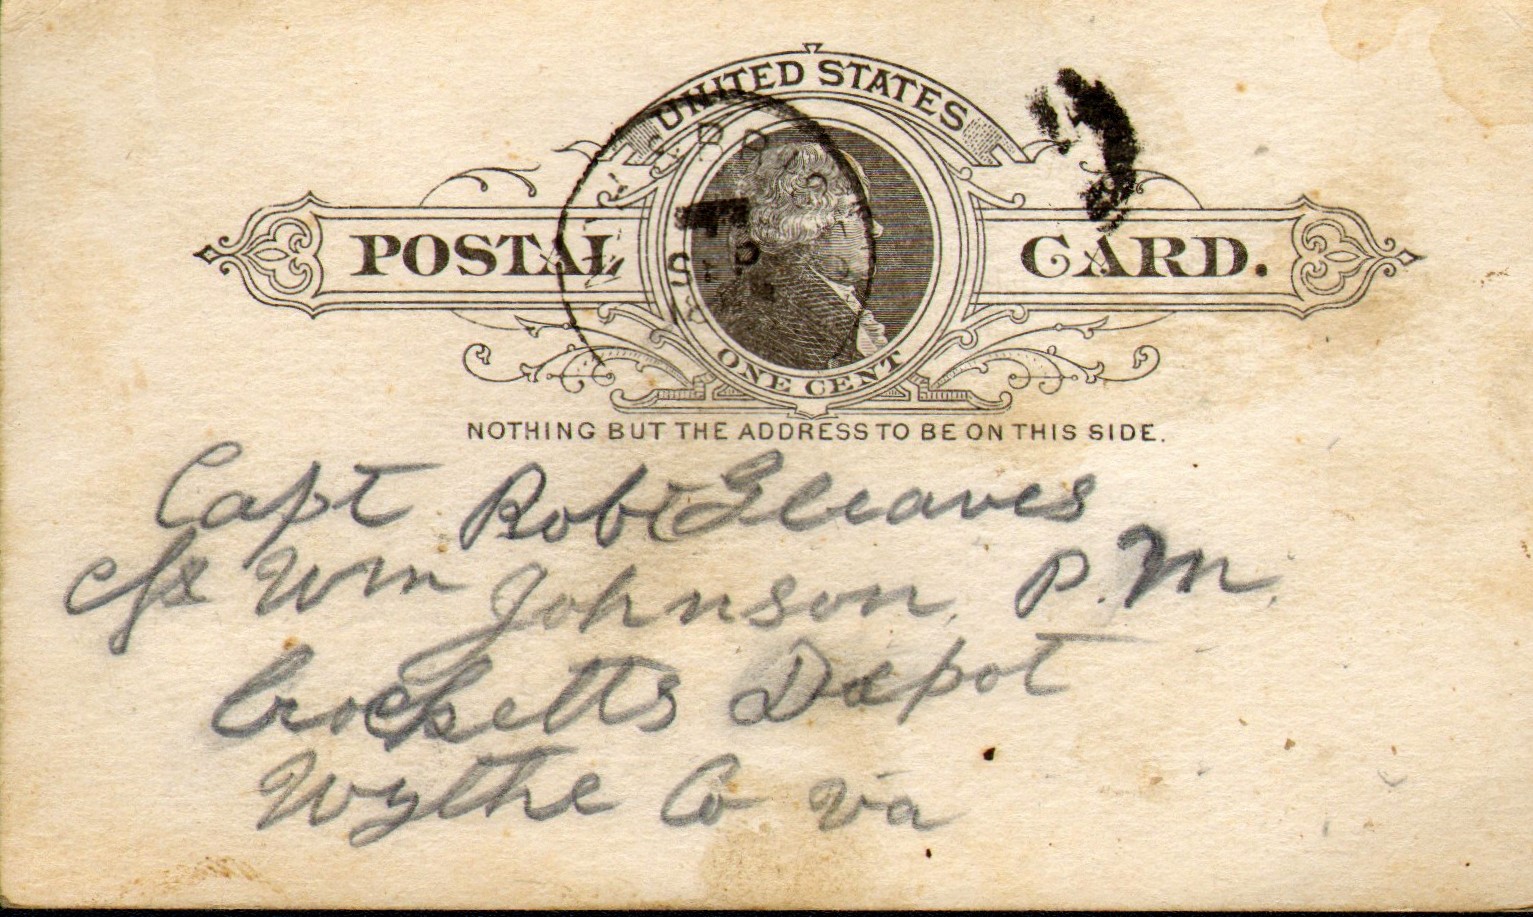 UNITED STATES
POSTAL CARD.
ONE CENT
NOTHING BUT THE ADDRESS TO BE ON THIS SIDE.
Capt Robt Gleaves
c/o Wm Johnson, P.M.
Crocketts Depot
Wythe Co Va